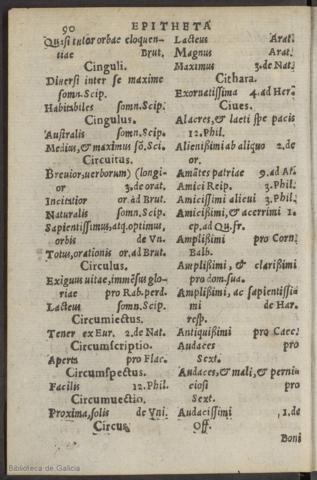 90 EPITHETA
Quasi tutor orbae eloquen-
tiae Brut.
Cinguli.
Diuersi inter se maxime
somn.Scip.
Habitabiles somn.Scip.
Cingulus.
Australis somn.Scip.
Medius,& maximus sõ.Sci.
Circuitus.
Breuior,uerborum) (longi-
or 3.de orat.
Incitatior or.ad Brut.
Naturalis somn.Scip.
Sapientissimus,atq.optimus,
orbis de Vn.
Totus,orationis or.ad Brut.
Circulus.
Exiguus uitae,immẽsus glo-
riae pro Rab.perd.
Lacteus somn.Scip.
Circumiectus.
Tener ex Eur. 2.de Nat.
Circumscriptio.
Aperta pro Flac.
Circumspectus.
Facilis 12.Phil.
Circumuectio.
Proxima,solis de Vni.
Circus
Lacteus Arat.
Magnus Arat.
Maximus 3.de Nat.
Cithara.
Exornatissima 4.ad Her.
Ciues.
Alacres,& laeti spe pacis
12.Phil.
Alienißimi ab aliquo 2.de
or.
Amãtes patriae 9.ad At.
Amici Reip. 3.Phil.
Amicissimi alicui 3.Phil.
Amicißimi,& acerrimi 1.
ep.ad Qu.fr.
Amplißimi pro Corn.
Balb.
Amplißimi, & clarißimi
pro dom.sua.
Amplißimi, ac sapientissi-
mi de Har.
resp.
Antiquißimi pro Caec.
Audaces pro
Sext.
Audaces,& mali,& perni-
ciosi pro
Sext.
Audacissimi 1.de
Off.
Boni
Biblioteca de Galicia